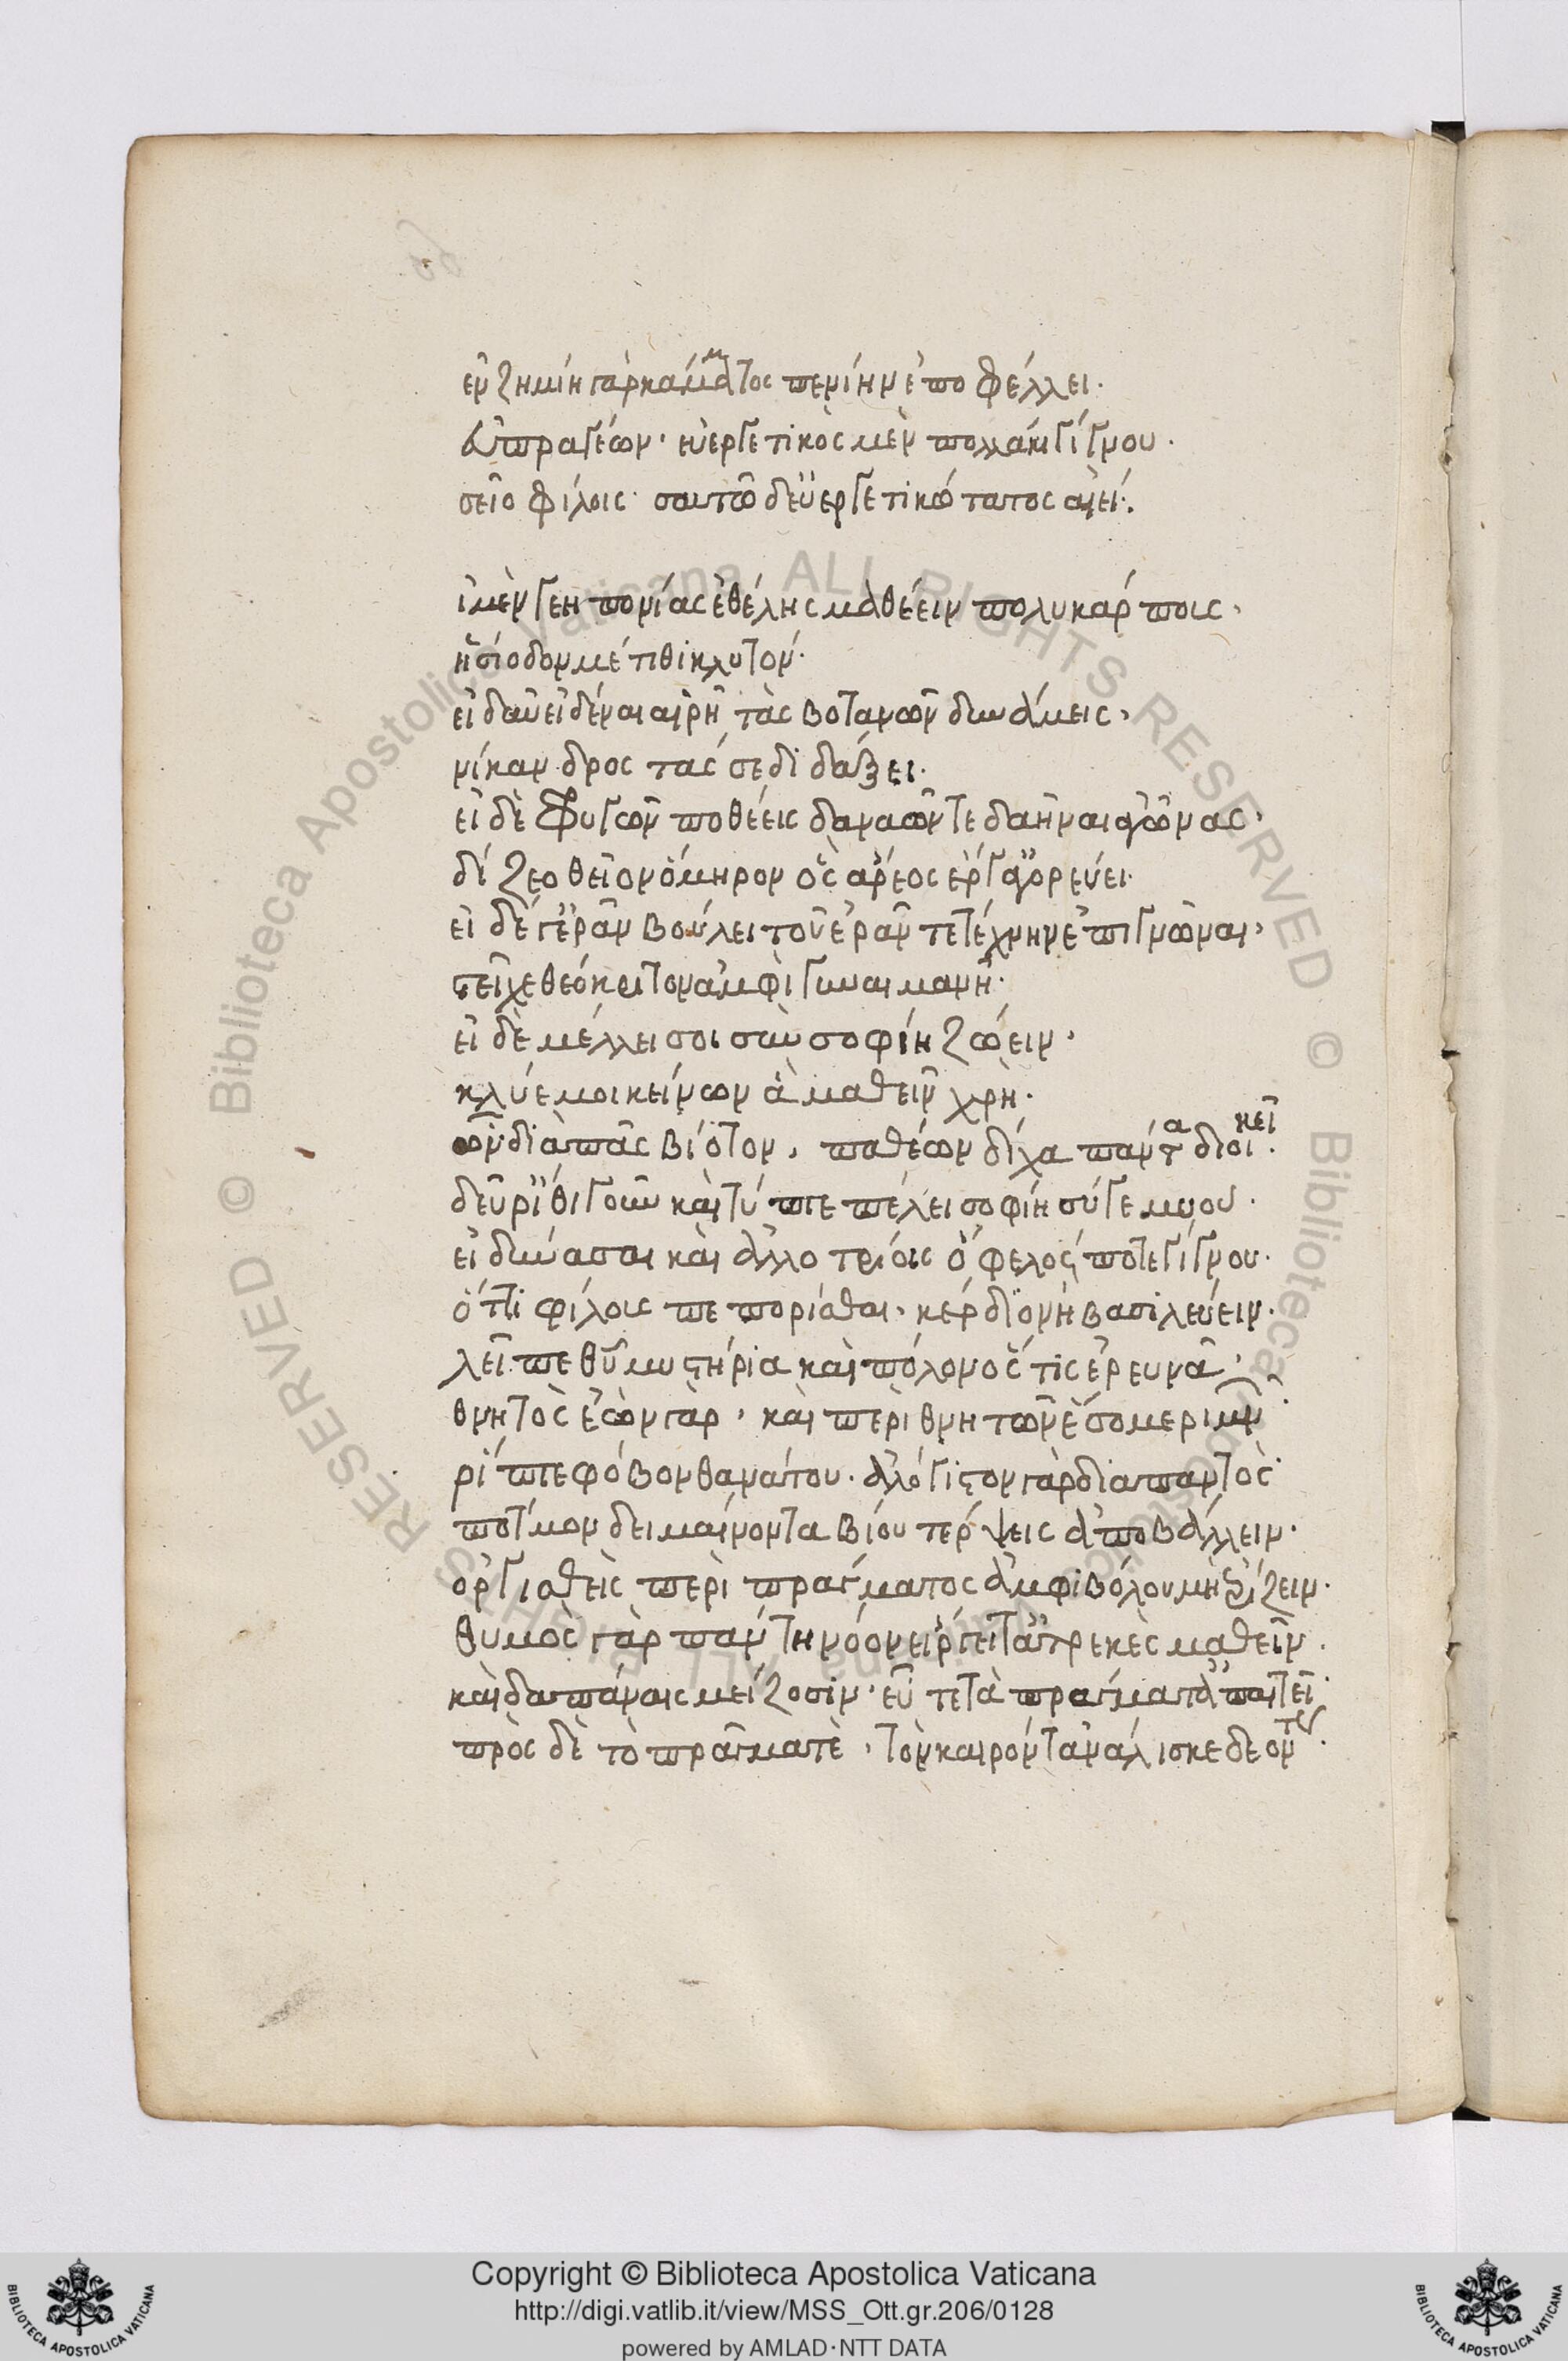 ἐν ζημίη γὰρ κάμματος πενίην ἐποφέλλει.
εὐπραγέων· εὐεργετικὸς μὲν πολλάκι γίγνου.
σεῖο φίλοις· σαυτῶ δ' εὐεργετικώτατος αἰεί:.
ἰ μὲν γεηπονίας ἐθέλης μαθέειν πολυκάρποις,
ἡσίοδον μέτιθι κλυτόν.
εἰ δ' αὖ εἰδέναι αἱρῆ τὰς βοτανῶν δυνάμεις,
νίκανδρος τάς σε διδάξει.
εἰ δὲ φυγῶν ποθέεις δαναῶν τε δαῆναι ἀγῶνας,
δίζεο θεῖον ὅμηρον ὃς ἄρεος ἔργ' ἀγορεύει.
εἰ δέ γ' ἐρᾶν βούλει τοῦ ἐρᾶν τε τέχνην ἐπιγνῶναι,
στεῖχε θεόκριτον ἀμφὶ γυναιμανῆ.
εἰ δὲ μέλλει σοι σὺν σοφίη ζώειν,
κλύε μοι κείνων ἃ μαθεῖν χρὴ.
ὧν διὰ πᾶς βίοτον, παθέων δίχα πάντα διοικεῖ.
δεῦρ' ἴθι γοῦν καὶ τύπτε πέλει σοφίη σύγε μνου.
εἰ δύνασαι καὶ ἀλλοτρίοις ὄφελός ποτε γίγνου.
ὅττι φίλοις πεπορίσθαι, κέρδιον ἢ βασιλεύειν.
λεῖπε θῦ μυστήρια καὶ πόλον ὅς τις ἐρευνᾶ,
θνητὸς ἐὼν γὰρ, καὶ περὶ θνητῶν ἔσο μεριμν
ρίπτε φόβον θανάτου. ἀλόγιστον γὰρ διαπαντὸς
πότμον δειμαίνοντα βίου τέρψεις ἀποβάλλειν.
ὀργισθεὶς περὶ πράγματος ἀμφιβόλου μὴ ἐρίζειν.
θυμὸς γὰρ πάντη νόον εἴργει τἀτρεκὲς μαθεῖν.
καὶ δαπάναις μείζοσιν· εὖ τε τὰ πράγματ' ἀπαιτεῖ.
πρὸς δὲ τὸ πρᾶγμά τε, τὸν καιρόν τ' ἀνάλισκε δεόντως.